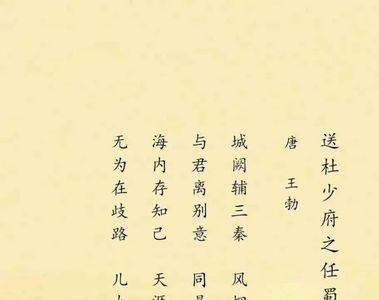 送杜少府之任蜀
唐 王勃
城阙辅三秦 风
与君离别意 同
海内存知己 天
无为在歧路 儿